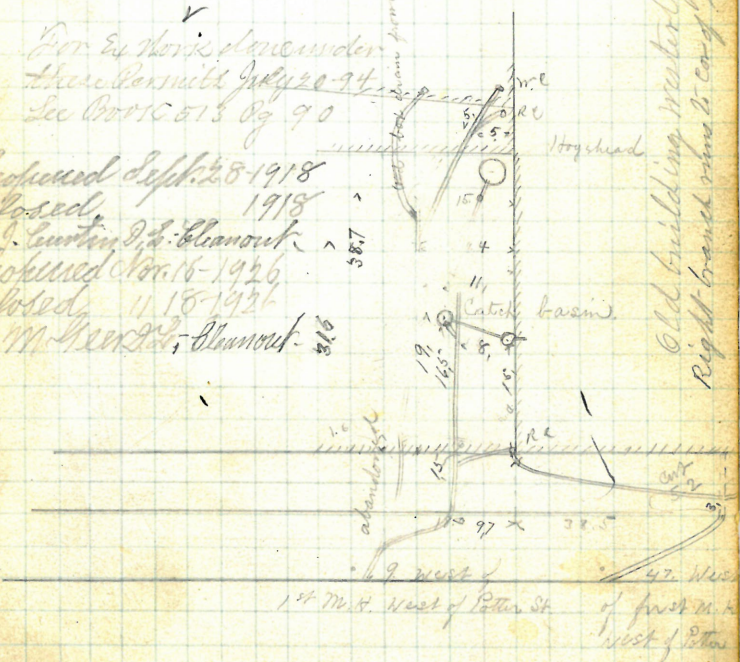 For Ex Work done under
these Permits July 20-94
See BOOK 513 Pg 90
opened Sept. 28-1918
losed 1918
J. Curtin D.L. Cleanout.
opened Nov. 16-1926
losed 11 18-1926
M Geer D.L. Cleanout.
38.7
316
box drain from
W.C
R L
5.
Hogshead
15.
4
11,
Catch basin.
8,
19,
16.5
15,
R L
15
abandoned
97
38.5
Cut
2
3,
9. West of
1st M.H. West of Potter St.
47. Wes
of first M.H
West of Potter
Old building water
Right branch runs to cor of